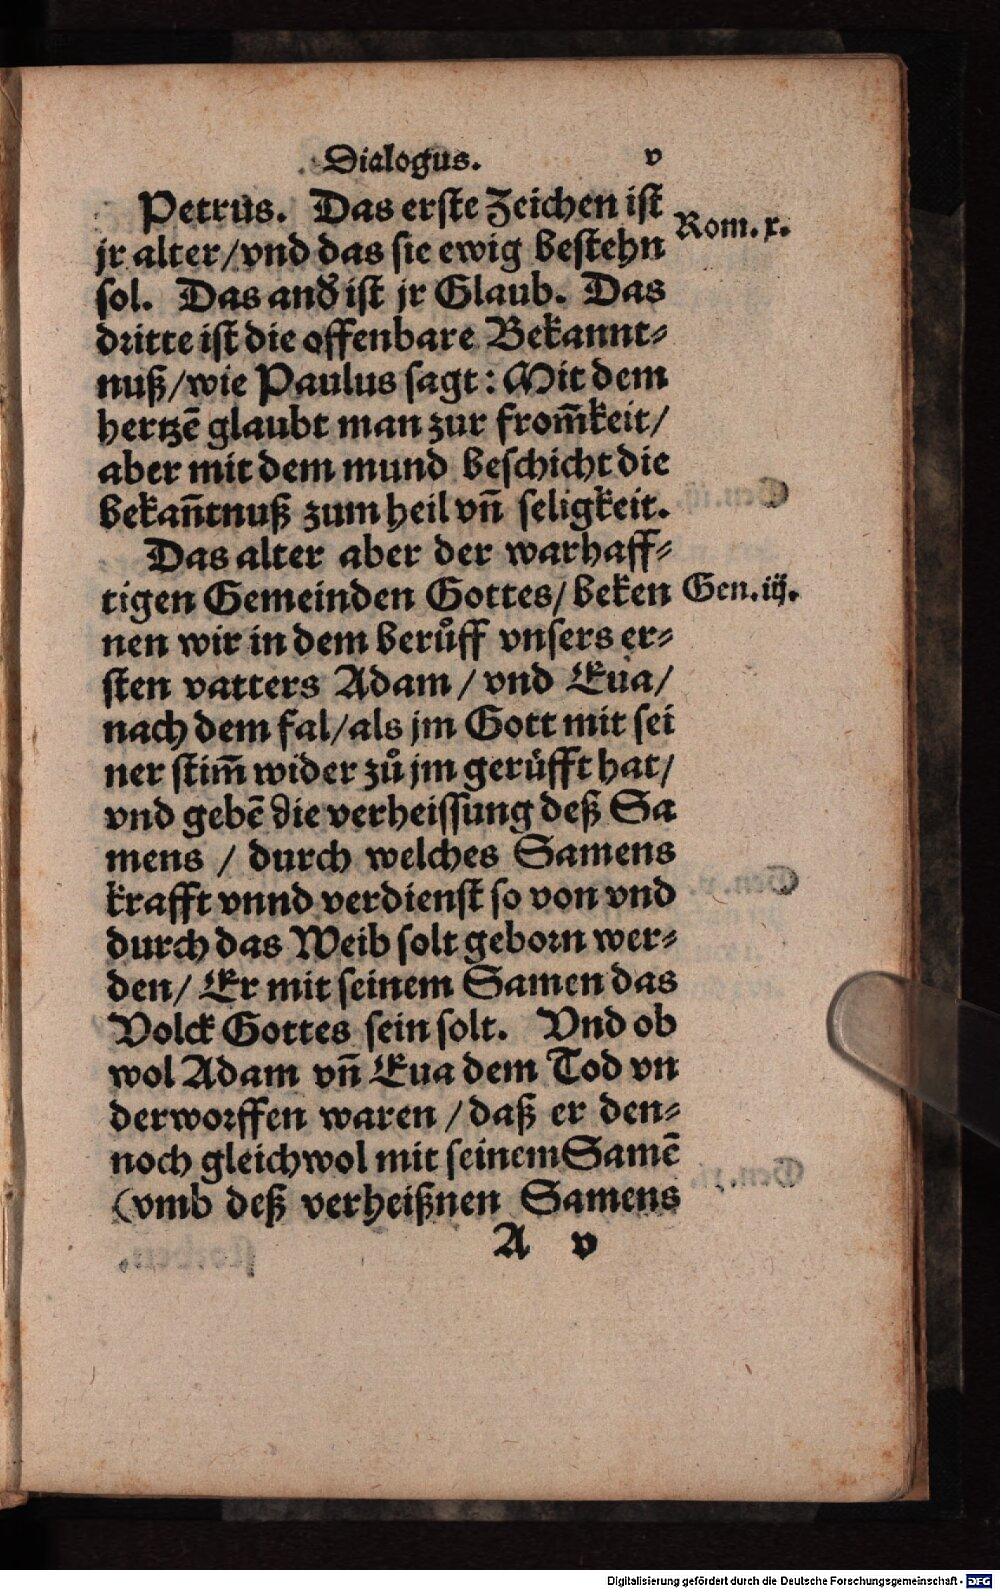 Dialogus. v
Petrus. Das erste Zeichen ist
Rom. x.
jr alter/vnd das sie ewig bestehn
sol. Das and̾ ist jr Glaub. Das
dritte ist die offenbare Bekannt⸗
nuß/wie Paulus sagt: Mit dem
hertzē glaubt man zur from̄keit/
aber mit dem mund beschicht die
bekan̄tnuß zum heil vn̄ seligkeit.
Das alter aber der warhaff⸗
tigen Gemeinden Gottes/ beken
Gen. iij.
nen wir in dem berůff vnsers er⸗
sten vatters Adam / vnd Eua/
nach dem fal/als jm Gott mit sei
ner stim̄ wider zů jm gerüfft hat/
vnd gebē die verheissung deß Sa
mens / durch welches Samens
krafft vnnd verdienst so von vnd
durch das Weib solt geborn wer⸗
den/ Er mit seinem Samen das
Volck Gottes sein solt. Vnd ob
wol Adam vn̄ Eua dem Tod vn
derworffen waren / daß er den⸗
noch gleichwol mit seinem Samē
(vmb deß verheißnen Samens
A v
Digitalisierung gefördert durch die Deutsche Forschungsgemeinschaft - DFG